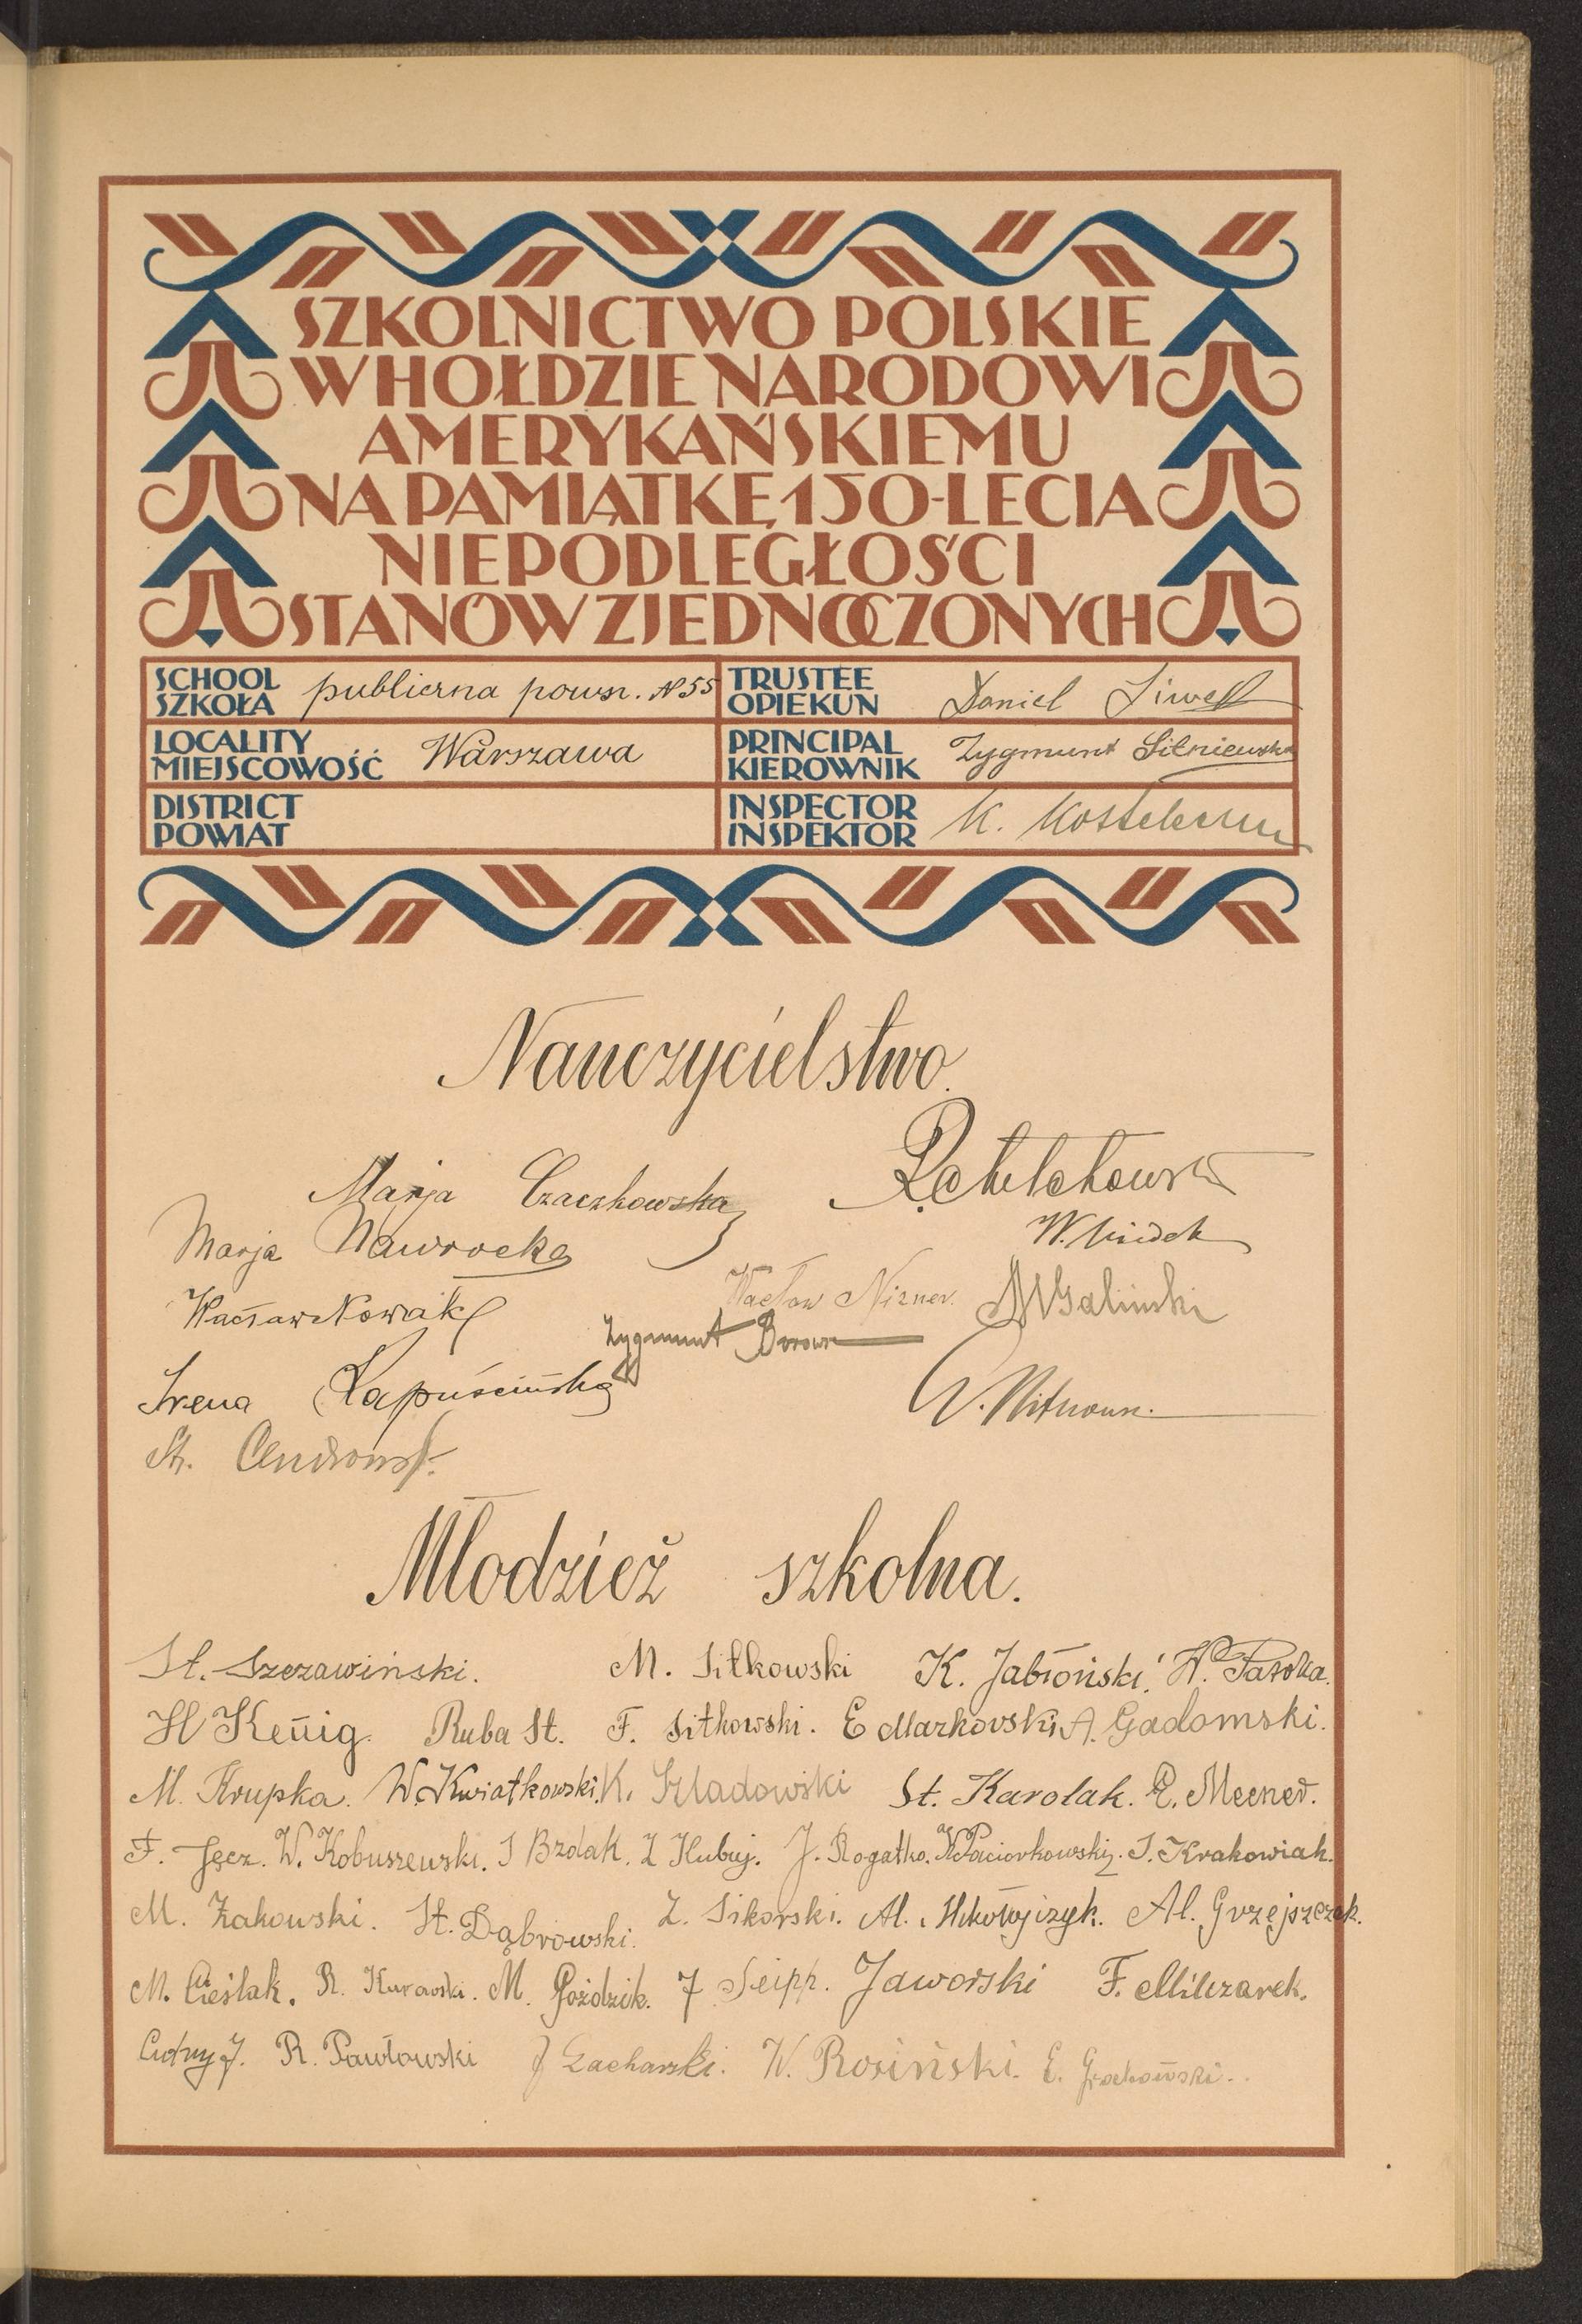 SZKOLNICTWO POLSKIE
W HOŁDZIE NARODOWI
AMERYKAŃSKIEMU
NA PAMIĄTKĘ 150-LECIA
NIEPODLEGŁOŚCI
STANÓW ZJEDNOCZONYCH
SCHOOL
SZKOŁA publiczna powsz. N 55
TRUSTEE
OPIEKUN Daniel
LOCALITY
MIEJSCOWOŚĆ Warszawa
PRINCIPAL
KIEROWNIK Zygmunt
DISTRICT
POWIAT
INSPECTOR
INSPEKTOR K.
Nauczycielstwo.
Marja Czaczkowska
Marja Nawrocka
W.
Wacław Nowak
Wacław Nizner.
Galiński
Zygmunt
Irena Kapuścińska
St.
Młodzież szkolna.
St. Szczawiński. M. Sitkowski K. Jabłoński. W.
H Kenig. Ruba St. F. Sitkowski. E Markovski A. Gadomski.
M. Krupka. W. Kwiatkowski. K. Szladowski St. Karolak. E.
F. Jęcz. W. Kobuszewski. S Bzdak. Z Kubuj. J. Rogatko. W Paciorkowski. S. Krakowiak.
M. Żakowski. St. Dąbrowski. Z. Sikorski. Al. Mikołajczyk. Al. Grzejszczak.
M. Cieślak. R. Kurowski. M. Goździk. F Seipp. Jaworski F. Milczarek.
Cudny J. R. Pawłowski J Zacharski. W. Rosiński. E. Grochowski.